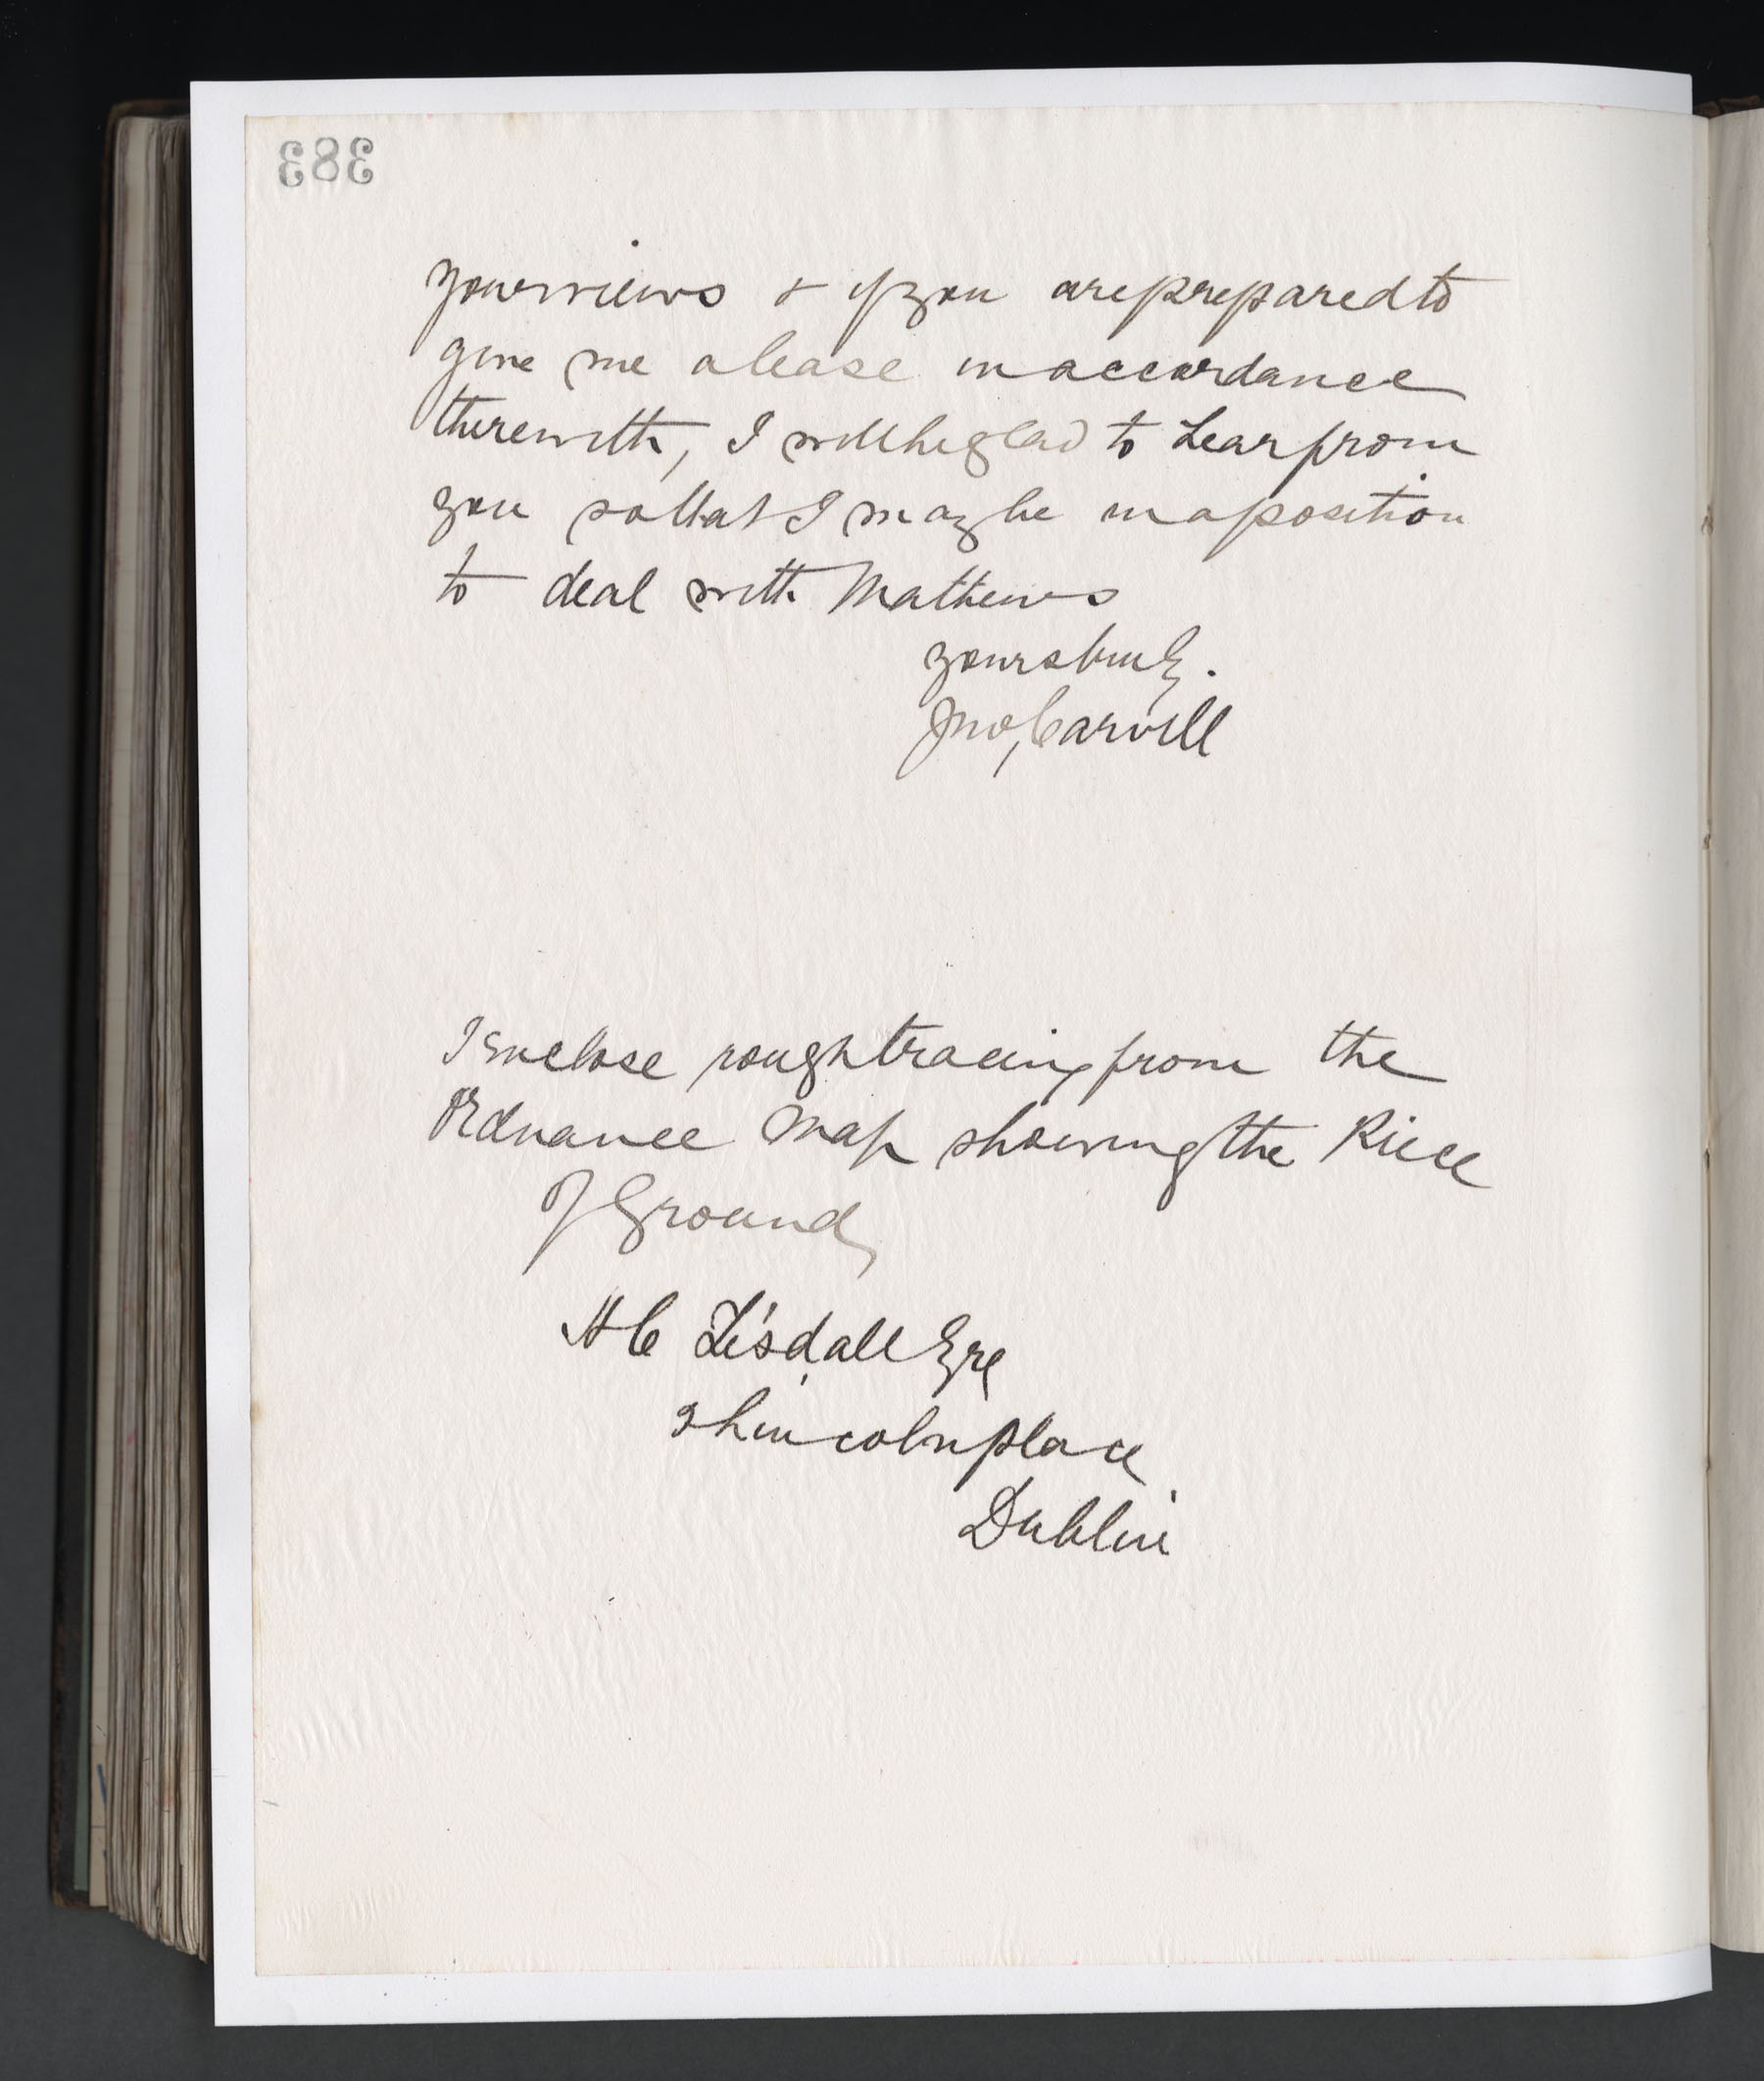 383
your views & if you are prepared to
give me a lease in accordance
therewith, I will be glad to hear from
you so that I may be in a position
to deal with Mathews
yours truly.
Jno, Carvill
I enclose rough tracing from the
Ordnance Map showing the Piece
of Ground
H C Tisdall Esq
Lincoln place
Dublin